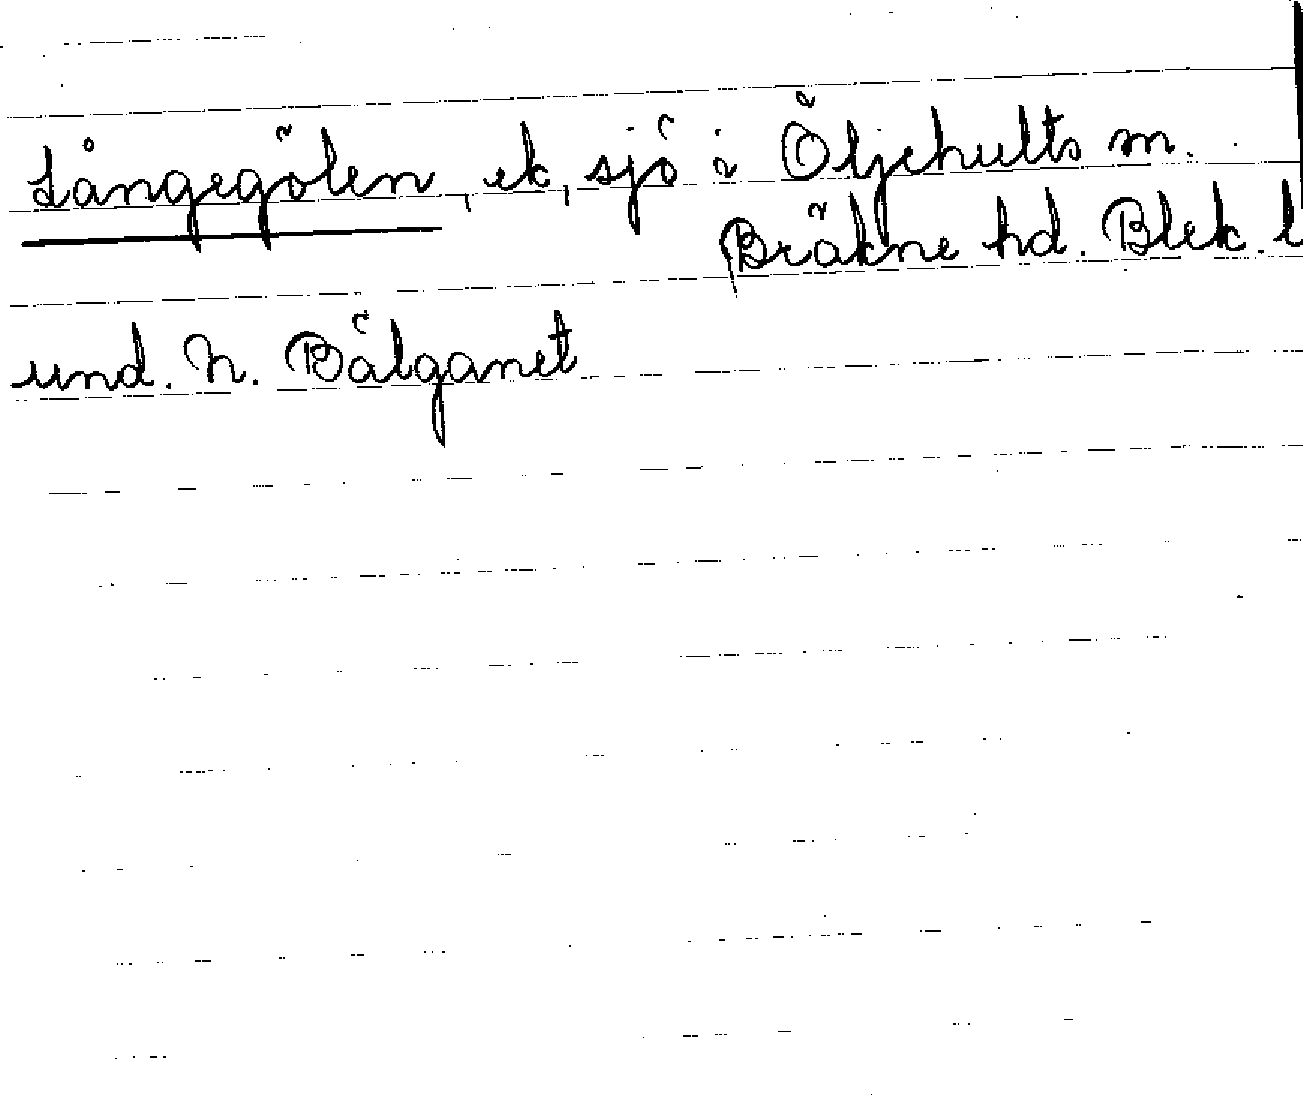 Långegölen, ek, sjö i Öljehults m.
Bräkne hd. Blek. l
und. N. Bälganet